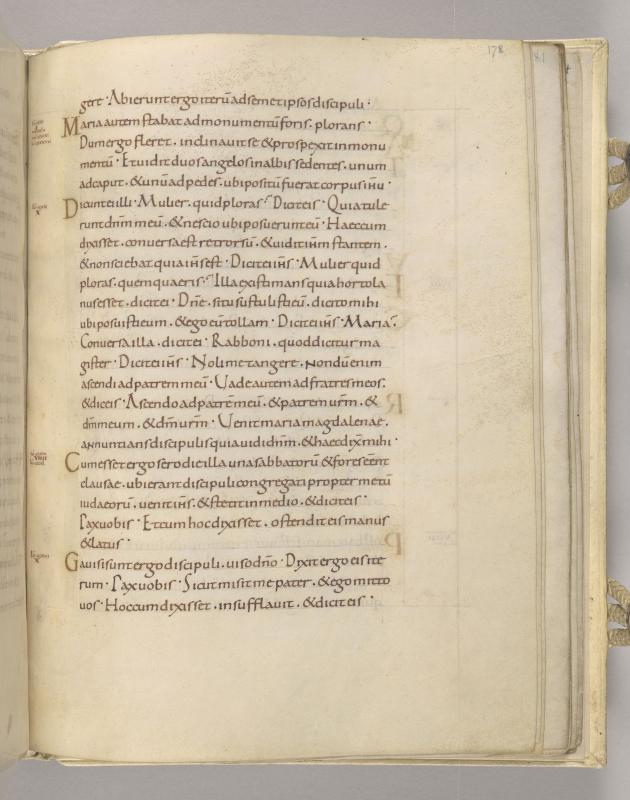 178
81
gere · Abierunt ergo iterū ad semetipsos discipuli ·
Maria autem stabat ad monumentū foris · plorans ·
Dum ergo fleret · inclinavit se & prospexit in monu
mentū · Et vidit duos angelos in albis sedentes · unum
ad caput · & unū ad pedes · ubi positū fuerat corpus ihu ·
Dicunt ei illi · Mulier · quid ploras? Dicit eis · Quia tule
runt dnm meū · & nescio ubi posuerunt eū · Haec cum
dixisset · conversa est retrorsū · & vidit ihm stantem ·
& non sciebat quia ihs est · Dicit ei ihs · Mulier quid
ploras · quem quaeris? Illa existimans quia hortola
nus esset · dicit ei · Dne · si tu sustulisti eū · dicito mihi
ubi posuisti eum · & ego eū tollam · Dicit ei ihs · Maria ·
Conversa illa · dicit ei · Rabboni · quod dicitur ma
gister · Dicit ei ihs · Noli me tangere · nondū enim
ascendi ad patrem meū · Vade autem ad fratres meos ·
& dic eis · Ascendo ad patrē meū · & patrem vrm · &
dm meum · & dm vrm · Venit maria magdalenae ·
annuntians discipulis quia vidi dnm · & haec dix mihi ·
Cum esset ergo sero die illa una sabbatorū & fores eent
clausae · ubi erant discipuli congregati propter metū
iudaeorū · venit ihs · & stetit in medio · & dicit eis ·
Pax vobis · Et cum hoc dixisset · ostendit eis manus
& latus ·
Gavisi sunt ergo discipuli · viso dno · Dixit ergo eis ite
rum · Pax vobis · Sicut misit me pater · & ego mitto
vos · Hoc cum dixisset · insufflavit · & dicit eis ·